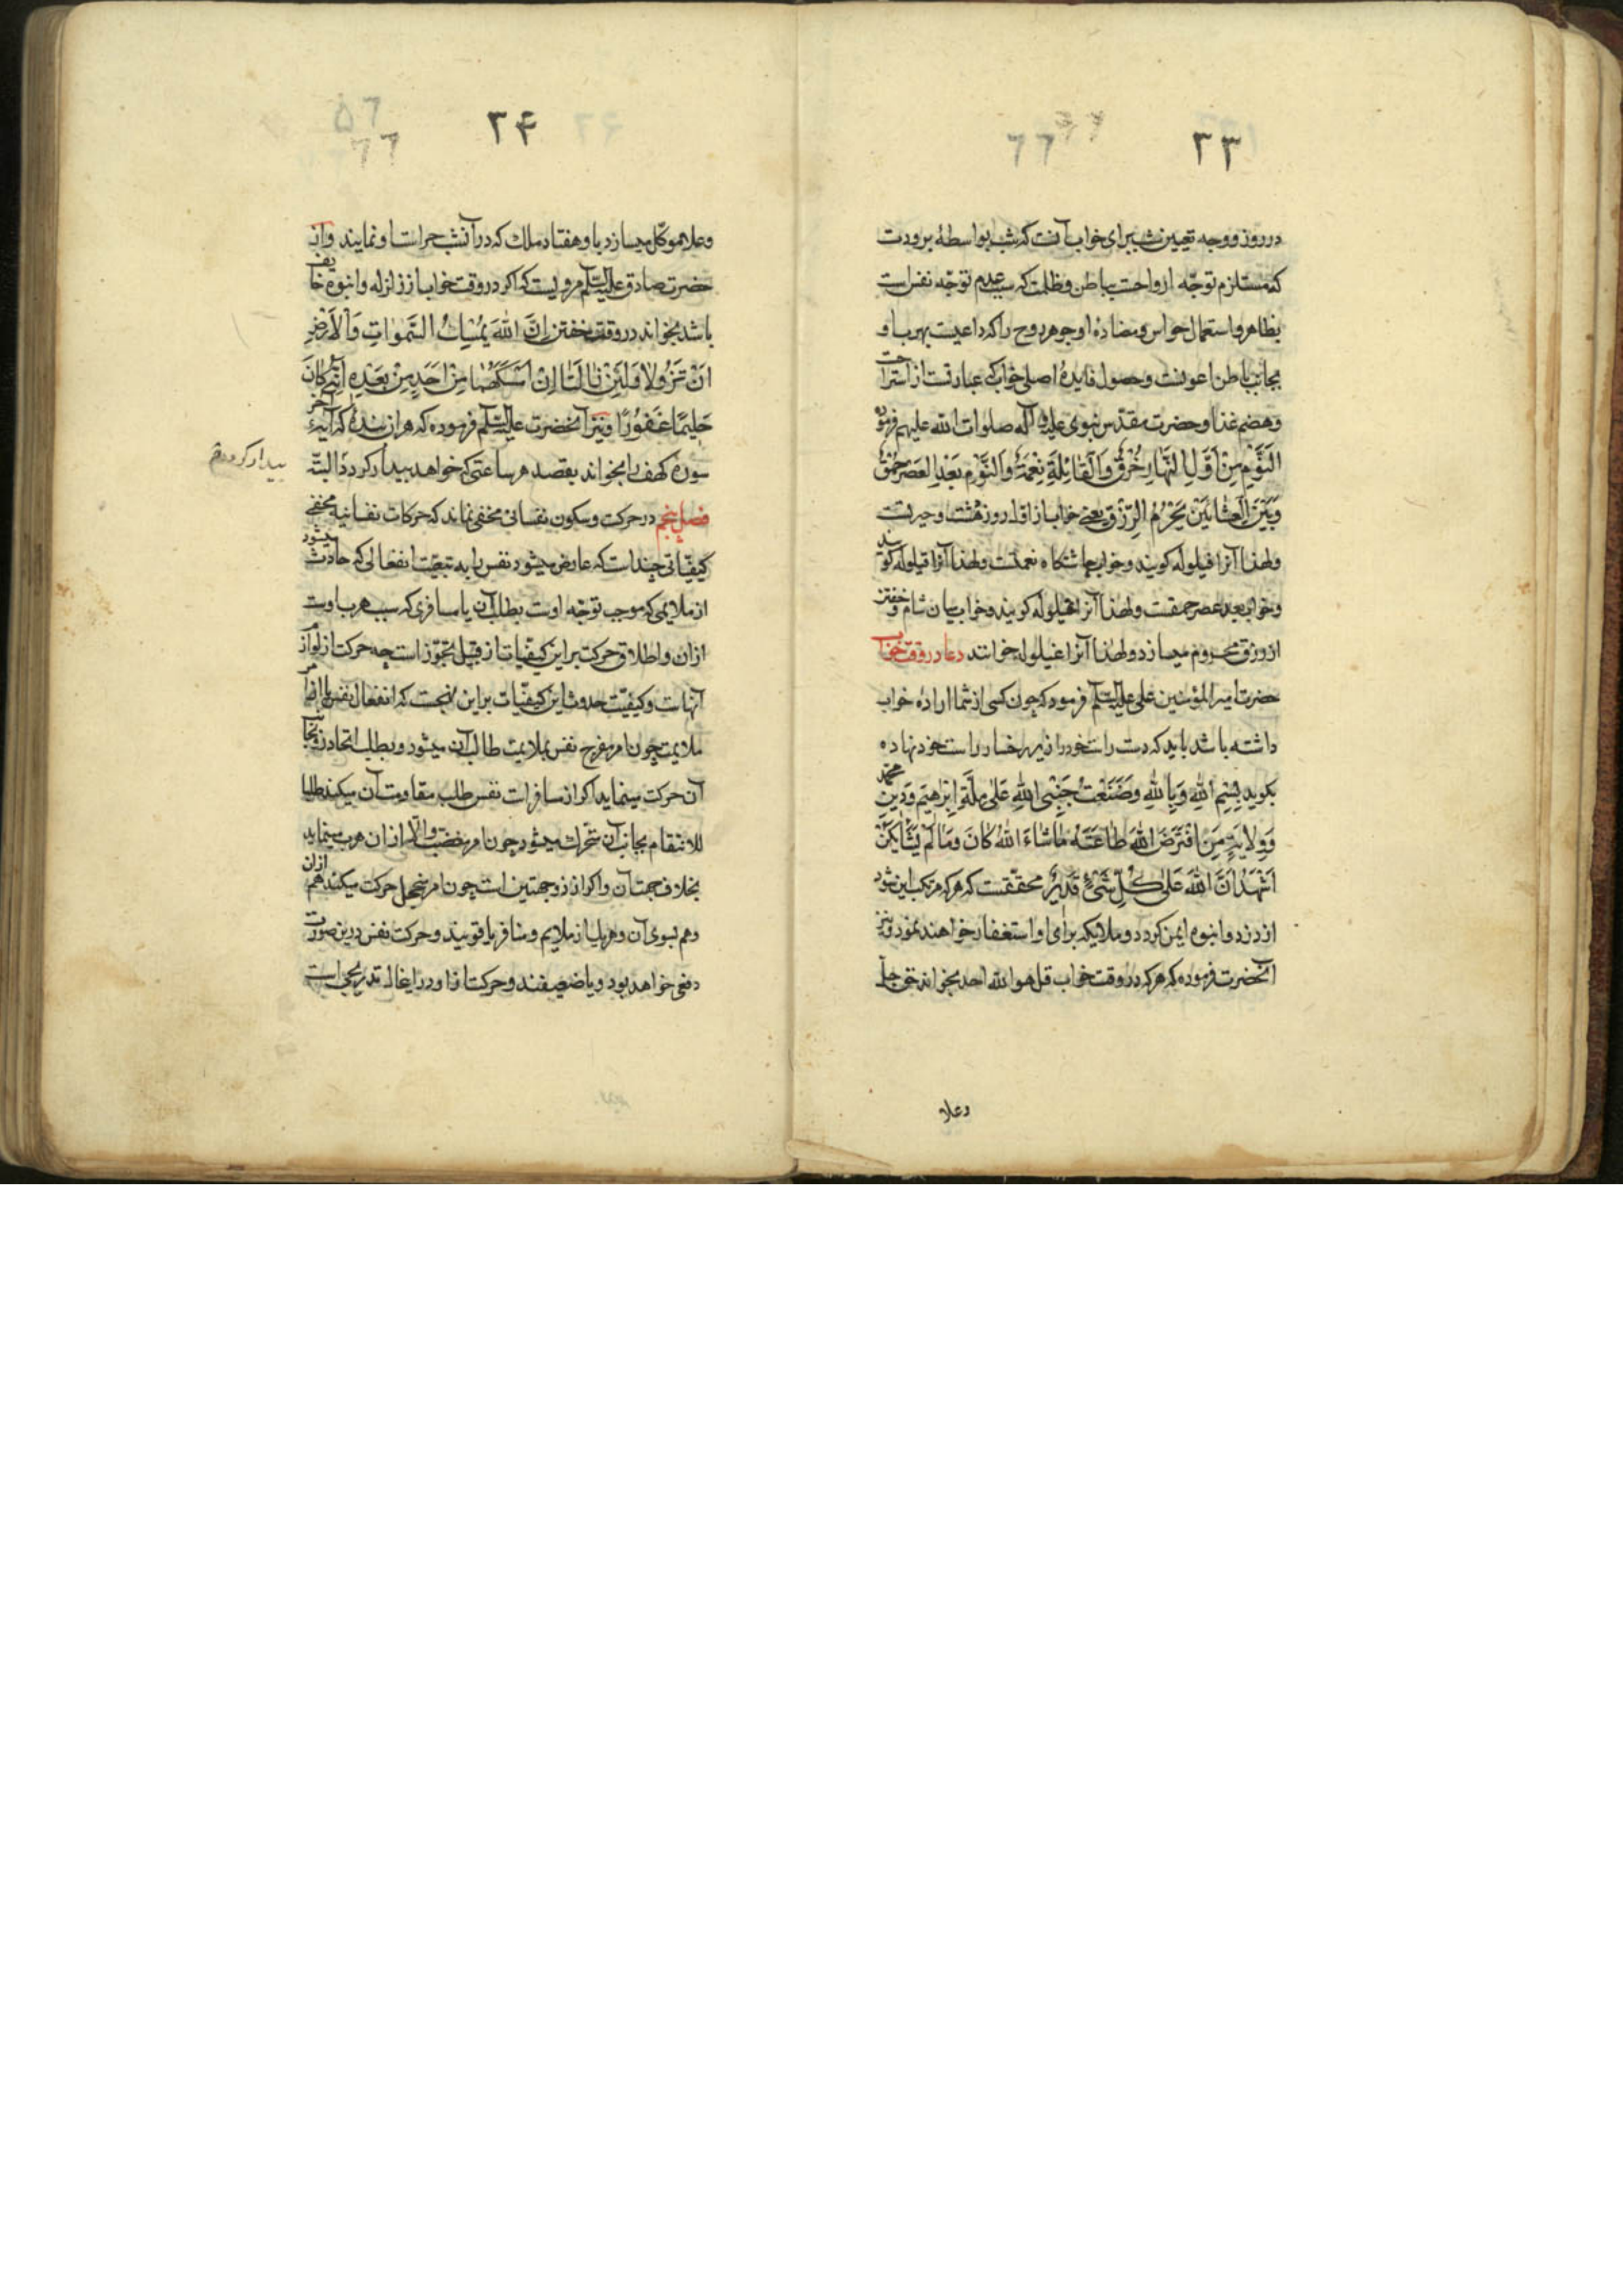 ۳۳
در روز و وجه تعیین شب برای خواب آنست که شب بواسطهٔ برودت
که مستلزم توجّه ارواحست بباطن و ظلمت که سبب عدم توجّه نفس است
بظاهر و استعمال حواس و مضادهٔ او جوهر روح را که داعیست بهرب او
بجانب باطن اعونست و حصول فایدهٔ اصلی خواب که عبارتست از استراحت
و هضم غذا و حضرت مقدّس نبوی علیه و آله صلوات الله علیهم فرموده
النَّوْمِ مِنْ اَوَّلِ النَّهَارِ خُرْقٌ وَالْقَائِلَةِ نِعْمَةٌ وَالنَّوْمِ بَعْدَ الْعَصْرِ حُمْقٌ
وَبَيْنَ الْعِشَائَيْنِ يَحْرُمُ الرِّزْقَ یعنی خواب از اوّل روز و حیرتست
و لهذا آنرا فیلوله کویند و خواب چاشتکاه نعمتست و لهذا آنرا قیلوله کویند
و خواب بعد عصر حمقست و لهذا آنرا کویند و خواب میان شام و خفتن
از رزق محروم میسازد و لهذا آنرا غیلوله خوانند دعا در وقت خواب
حضرت امیر المؤمنین علی علیه السّلم فرمود که چون کسی از شما ارادهٔ خواب
داشته باشد باید که دست راست خود را زیر رخسار راست خود نهاده
بکوید بِسْمِ اللهِ وَبِاللهِ وَضَعْتُ جَنْبِي لِلّٰهِ عَلىٰ مِلَّةِ اِبْرٰهِيْمَ وَدِيْنِ مُحَمَّدٍ
وَوِلَايَةِ مَنِ افْتَرَضَ اللهُ طَاعَتَهُ مَا شَاءَ اللهُ كَانَ وَمَا لَمْ يَشَأْ لَمْ يَكُنْ
اَشْهَدُ اَنَّ اللهَ عَلىٰ كُلِّ شَيْءٍ قَدِيْرٌ محقّقست که هر که مرتکب این شود
از دزد و انبوه ایمن کردد و ملایکه برای او استغفار خواهند نمود و نیز
آنحضرت فرموده که هر که در وقت خواب قل هو الله احد بخواند حق جلّ
وعلا
۳۴
وعلا موکّل میسازد باو هفتاد ملک که در آنشب حراست او نمایند و از
حضرت صادق علیه السّلم مرویست که اکر در وقت خواب از زلزله و انبوه خایف
باشد بخواند در وقت خفتن اِنَّ اللهَ يُمْسِكُ السَّمٰوٰاتِ وَالْاَرْضَ
اَنْ تَزُوْلَا وَلَئِنْ زَالَتَا اِنْ اَمْسَكَهُمَا مِنْ اَحَدٍ مِنْ بَعْدِهِ اِنَّهُ كَانَ
حَلِيْمًا غَفُوْرًا و نیز آنحضرت علیه السّلم فرموده که هر آن بندهٔ که آیهٔ آخر
سوره کهف را بخواند بقصد هر ساعتی که خواهد بیدار کردد البتّه
بیدار کردد
فصل پنجم در حرکت و سکون نفسانی مخفی نماند که حرکات نفسانیه
کیفیّاتی چند است که عارض میشود نفس را به تبعیّت انفعالی که حادث میشود
از ملایمی که موجب توجّه اوست بطلب آن یا منافری که سبب هرب اوست
ازان و اطلاق حرکت بر این کیفیّات از قبیل تجوّز است چه حرکت از لوازم
آنهاست و کیفیّت حدوث این کیفیّات بر این نهجست که انفعال نفس
ملایمست چون امر مفرح نفس بملایمت طالب آن میشود و بطلب اتحاد بجانب
آن حرکت مینماید و اکر از منافراتست نفس طلب مقاومت آن میکند طلبا
للانتقام بجانب آن متحرک میشود چون امر مغضب والّا ازان هرب مینماید
بخلاف جهت آن و اکر از ذو جهتین است چون امر مخجل حرکت میکند هم ازان
و هم بسوی آن و هر یک از ملایم و منافر یا قویند و حرکت نفس درین صورت
دفعی خواهد بود و یا ضعیفند و حرکت او در اغلب تدریجی است